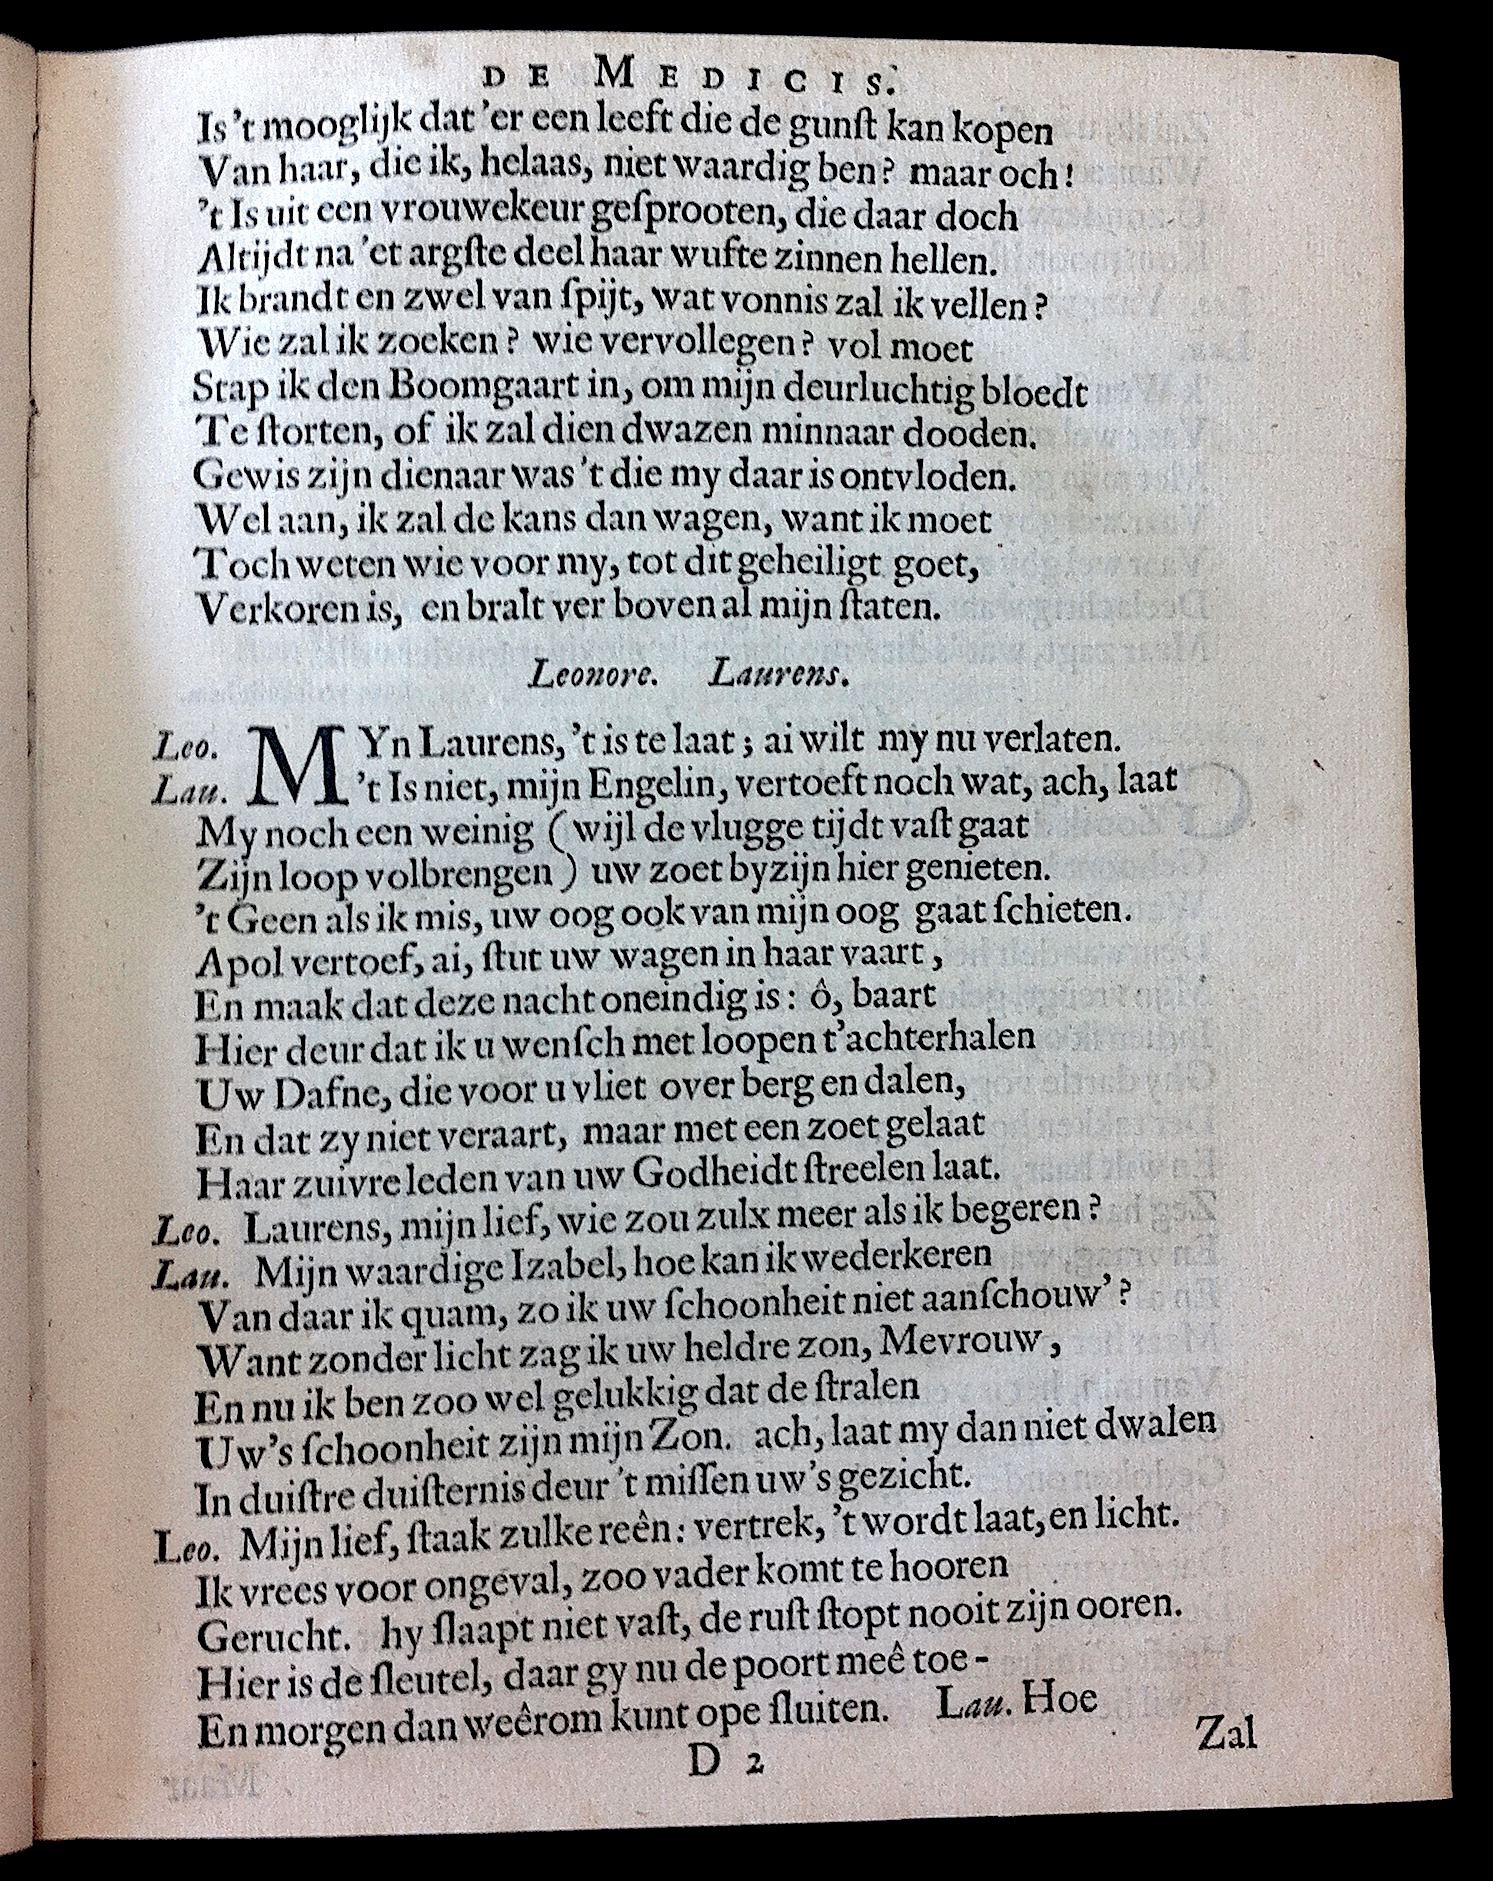 DE MEDICIS.
Is 't mooglijk dat 'er een leeft die de gunſt kan kopen
Van haar, die ik, helaas, niet waardig ben? maar och!
't Is uit een vrouwekeur geſprooten, die daar doch
Altijdt na 'et argſte deel haar wufte zinnen hellen.
Ik brandt en zwel van ſpijt, wat vonnis zal ik vellen?
Wie zal ik zoeken? wie vervollegen? vol moet
Stap ik den Boomgaart in, om mijn deurluchtig bloedt
Te ſtorten, of ik zal dien dwazen minnaar dooden.
Gewis zijn dienaar was 't die my daar is ontvloden.
Wel aan, ik zal de kans dan wagen, want ik moet
Toch weten wie voor my, tot dit geheiligt goet,
Verkoren is, en bralt ver boven al mijn ſtaten.
Leonore. Laurens.
Leo. MYn Laurens, 't is te laat; ai wilt my nu verlaten.
Lau. 't Is niet, mijn Engelin, vertoeft noch wat, ach, laat
My noch een weinig (wijl de vlugge tijdt vaſt gaat
Zijn loop volbrengen) uw zoet byzijn hier genieten.
't Geen als ik mis, uw oog ook van mijn oog gaat ſchieten.
Apol vertoef, ai, ſtut uw wagen in haar vaart,
En maak dat deze nacht oneindig is: ô, baart
Hier deur dat ik u wenſch met loopen t'achterhalen
Uw Dafne, die voor u vliet over berg en dalen,
En dat zy niet veraart, maar met een zoet gelaat
Haar zuivre leden van uw Godheidt ſtreelen laat.
Leo. Laurens, mijn lief, wie zou zulx meer als ik begeren?
Lau. Mijn waardige Izabel, hoe kan ik wederkeren
Van daar ik quam, zo ik uw ſchoonheit niet aanſchouw'?
Want zonder licht zag ik uw heldre zon, Mevrouw,
En nu ik ben zoo wel gelukkig dat de ſtralen
Uw's ſchoonheit zijn mijn Zon. ach, laat my dan niet dwalen
In duiſtre duiſternis deur 't miſſen uw's gezicht.
Leo. Mijn lief, ſtaak zulke reên: vertrek, 't wordt laat, en licht.
Ik vrees voor ongeval, zoo vader komt te hooren
Gerucht. hy ſlaapt niet vaſt, de ruſt ſtopt nooit zijn ooren.
Hier is de ſleutel, daar gy nu de poort meê toe-
En morgen dan weêrom kunt ope ſluiten. Lau. Hoe
D 2
Zal